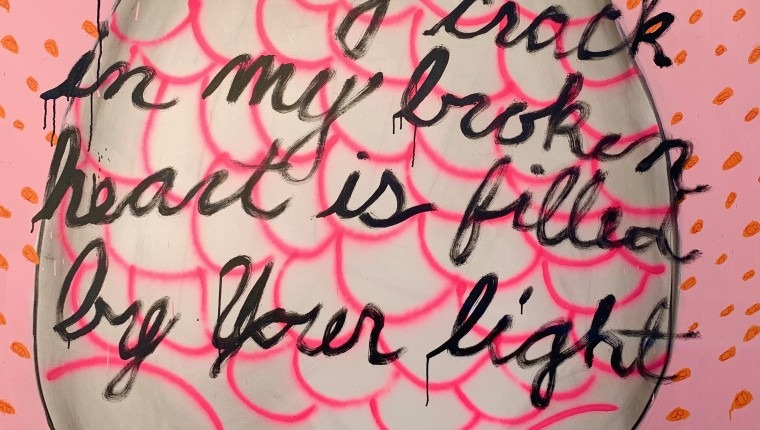 crack
in my broken
heart is filled
by your light